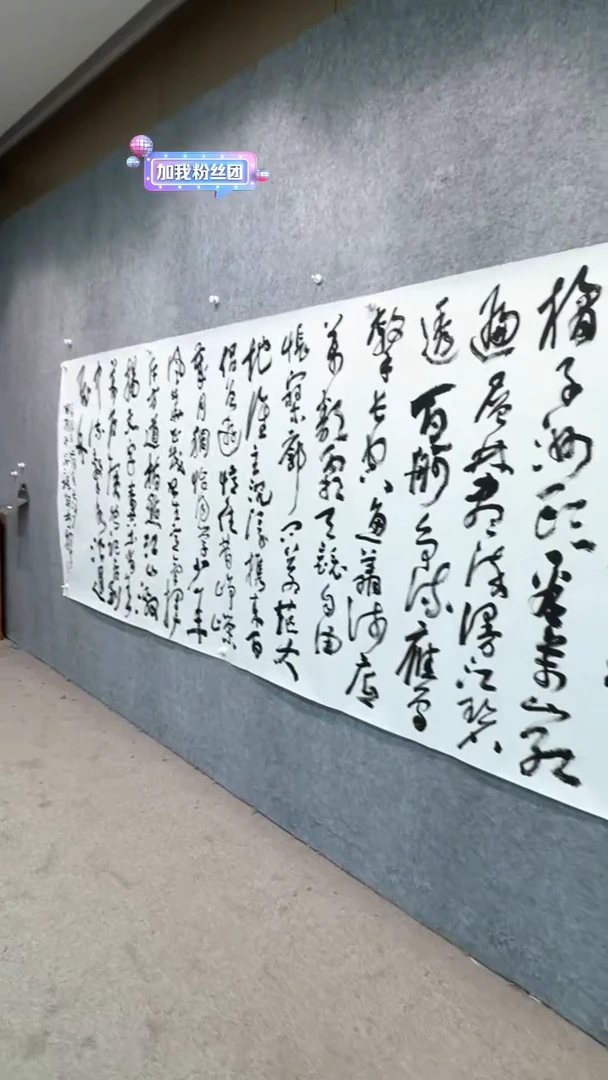 加我粉丝团
橘子洲头看万山红
遍层林尽染漫江碧
透百舸争流鹰
击长空鱼翔浅底
万类霜天竞自由
怅寥廓问苍茫大
地谁主沉浮携来百
侣曾游忆往昔峥嵘
岁月稠恰同学少年
风华
方遒指点江山激
扬文字粪土当年
万户侯曾记否到
中流击水浪遏
飞舟